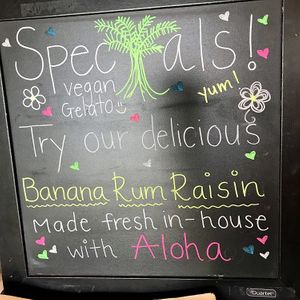 Specials!
vegan
Gelato
Yum!
Try our delicious
Banana Rum Raisin
Made fresh in-house
with Aloha
Quartet